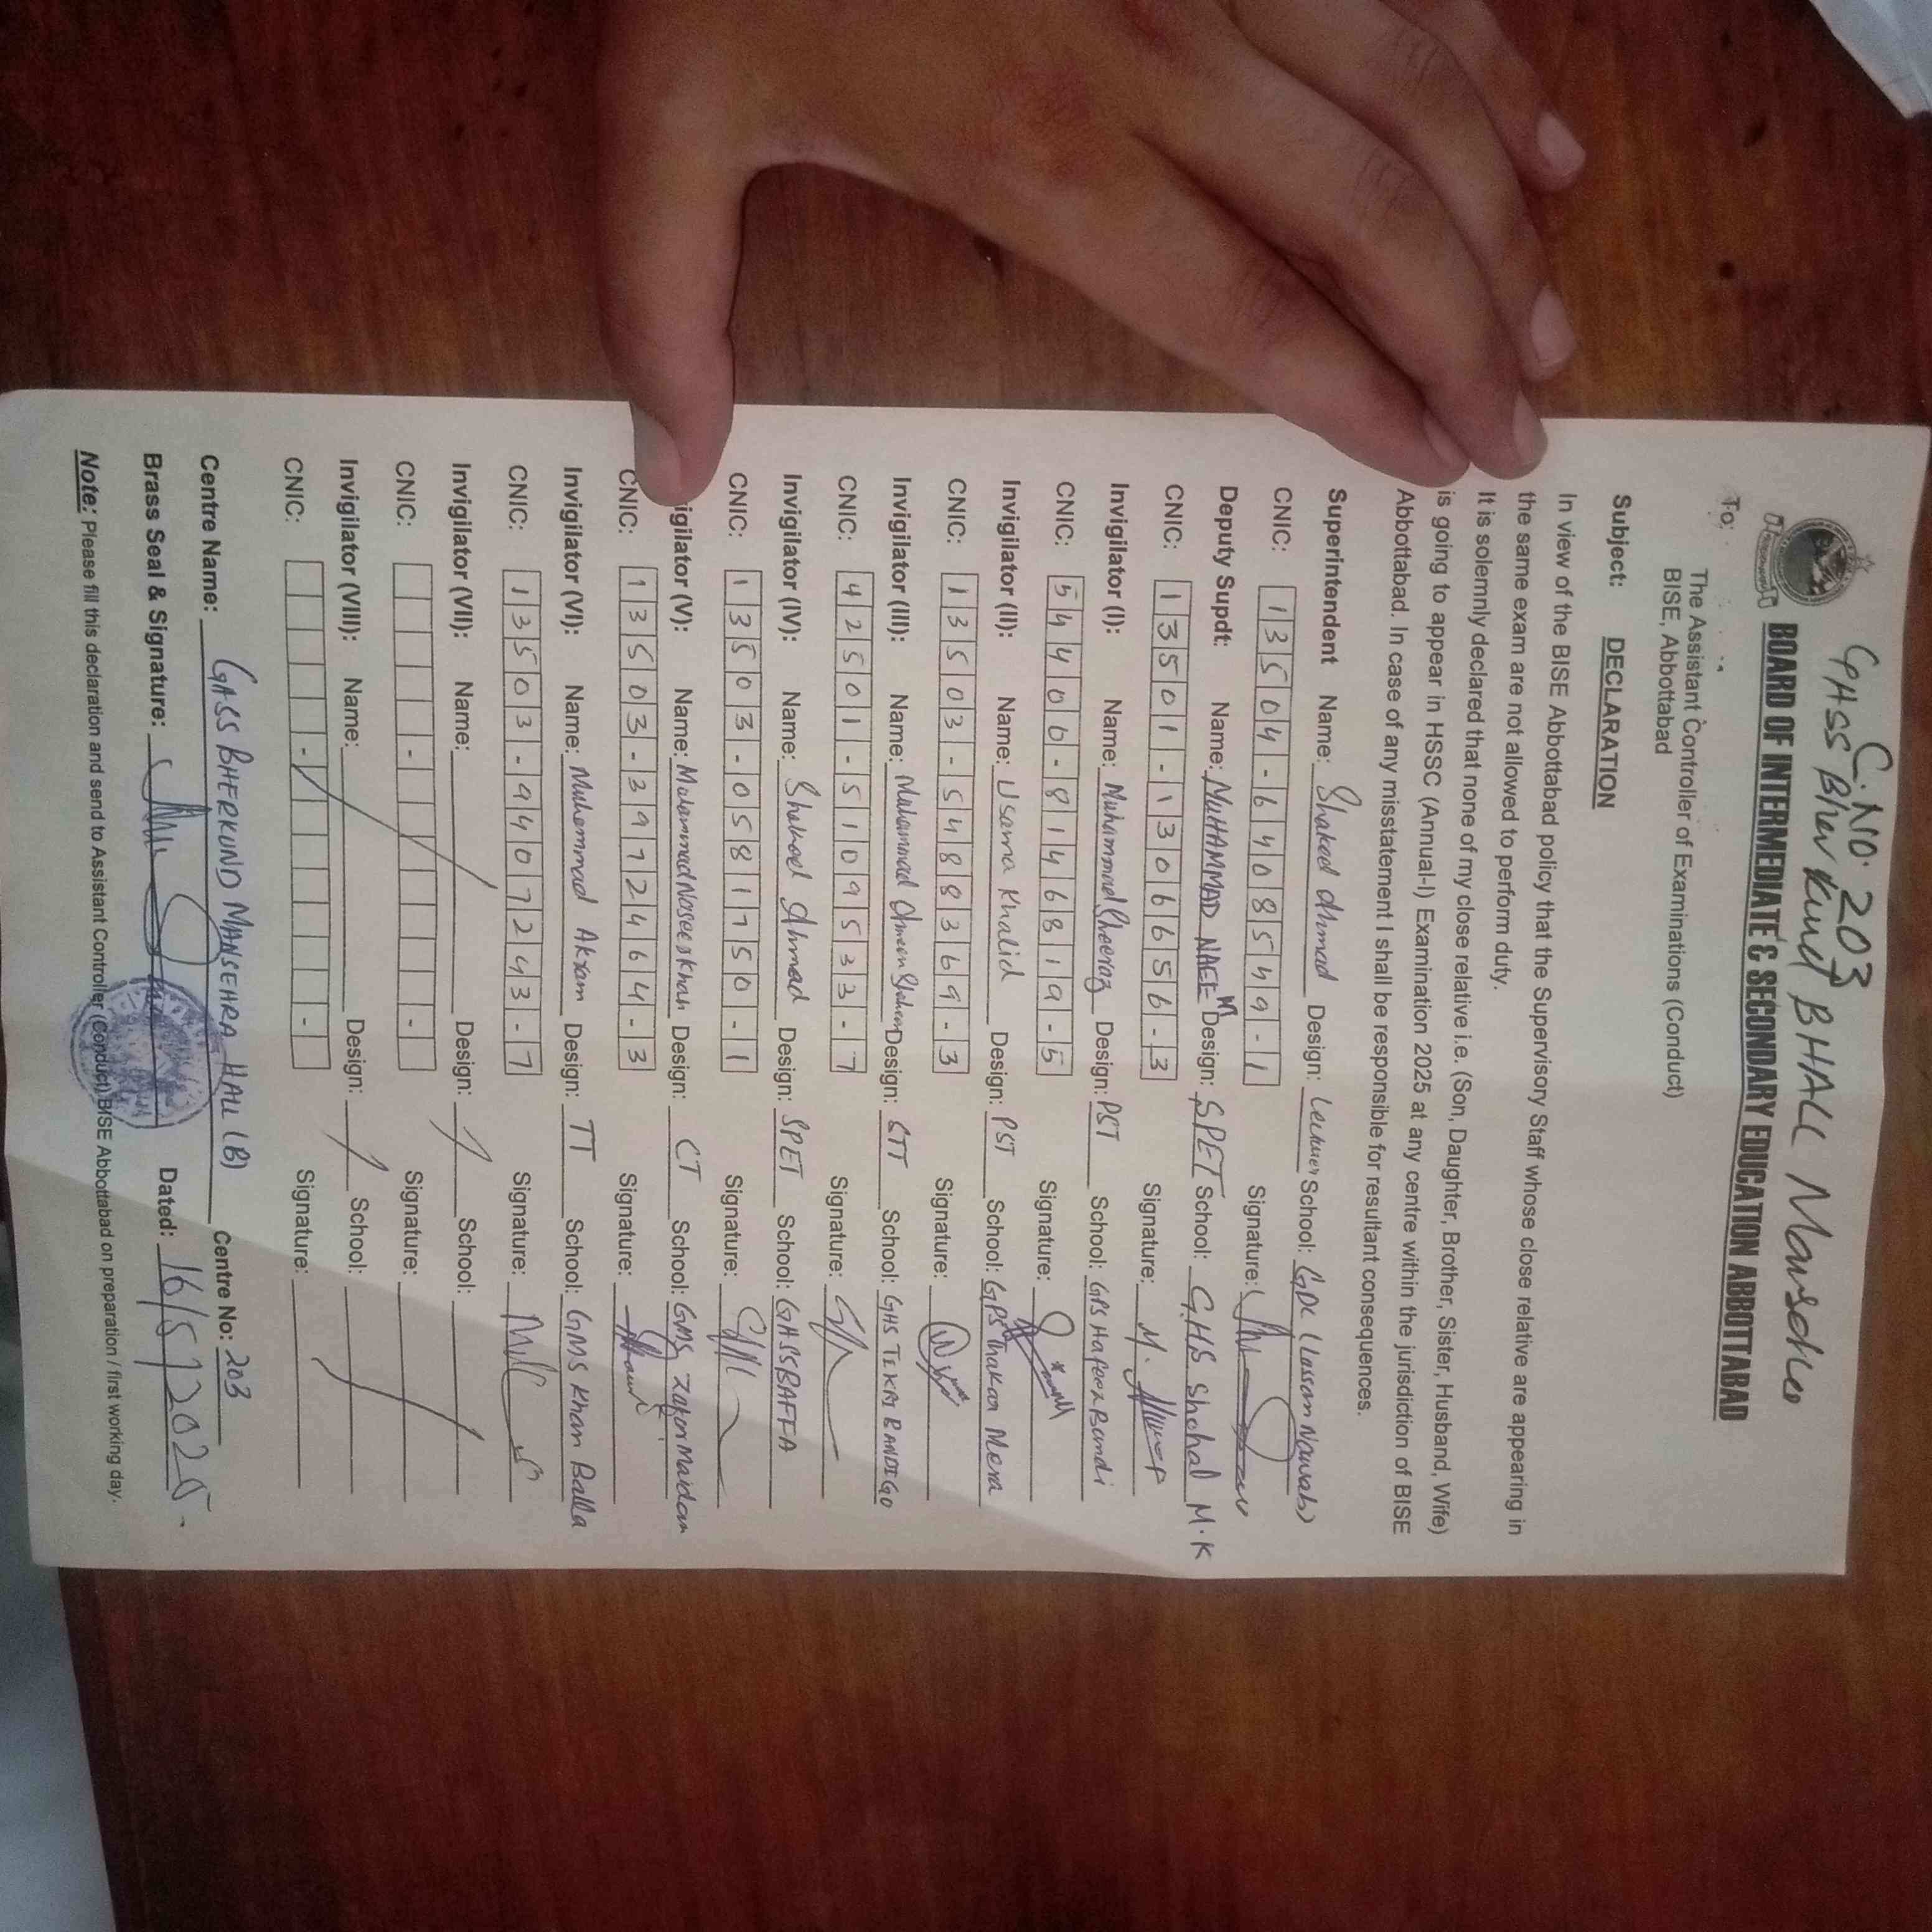 C.NO. 203
GHSS Bher Kund B HALL Mansehra
BOARD OF INTERMEDIATE & SECONDARY EDUCATION ABBOTTABAD
To:
The Assistant Controller of Examinations (Conduct)
BISE, Abbottabad
Subject: DECLARATION
In view of the BISE Abbottabad policy that the Supervisory Staff whose close relative are appearing in
the same exam are not allowed to perform duty.
It is solemnly declared that none of my close relative i.e. (Son, Daughter, Brother, Sister, Husband, Wife)
is going to appear in HSSC (Annual-I) Examination 2025 at any centre within the jurisdiction of BISE
Abbottabad. In case of any misstatement I shall be responsible for resultant consequences.
Superintendent Name: Shakeel Ahmad Design: Lecturer School: GDC (Lassan Nawab)
CNIC: 13504-6408549-1 Signature:
Deputy Supdt: Name: MUHAMMAD NAEEM Design: SPET School: GHS Shohal M.K
CNIC: 13501-1306656-3 Signature:
Invigilator (I): Name: Muhammad Sheeraz Design: PST School: GPS Hafeez Bandi
CNIC: 54400-8146819-5 Signature:
Invigilator (II): Name: Usama Khalid Design: PST School: GPS Thakara Mera
CNIC: 13503-5488369-3 Signature:
Invigilator (III): Name: Muhammad Ameen Design: STT School: GHS TEKRI BANDIGO
CNIC: 42501-5109533-7 Signature:
Invigilator (IV): Name: Shakeel Ahmad Design: SPET School: GHSS BAFFA
CNIC: 13503-0581750-1 Signature:
igilator (V): Name: Muhammad Naseer Khan Design: CT School: GMS Maidan
CNIC: 13503-3972464-3 Signature:
Invigilator (VI): Name: Muhammad Akram Design: TT School: GMS Khan Balla
CNIC: 13503-9407243-7 Signature:
Invigilator (VII): Name: Design: School:
CNIC: - - Signature:
Invigilator (VIII): Name: Design: School:
CNIC: - - Signature:
Centre Name: GHSS BHERKUND MANSEHRA HALL (B) Centre No: 203
Brass Seal & Signature: Dated: 16/5/2025
Note: Please fill this declaration and send to Assistant Controller (Conduct) BISE Abbottabad on preparation / first working day.